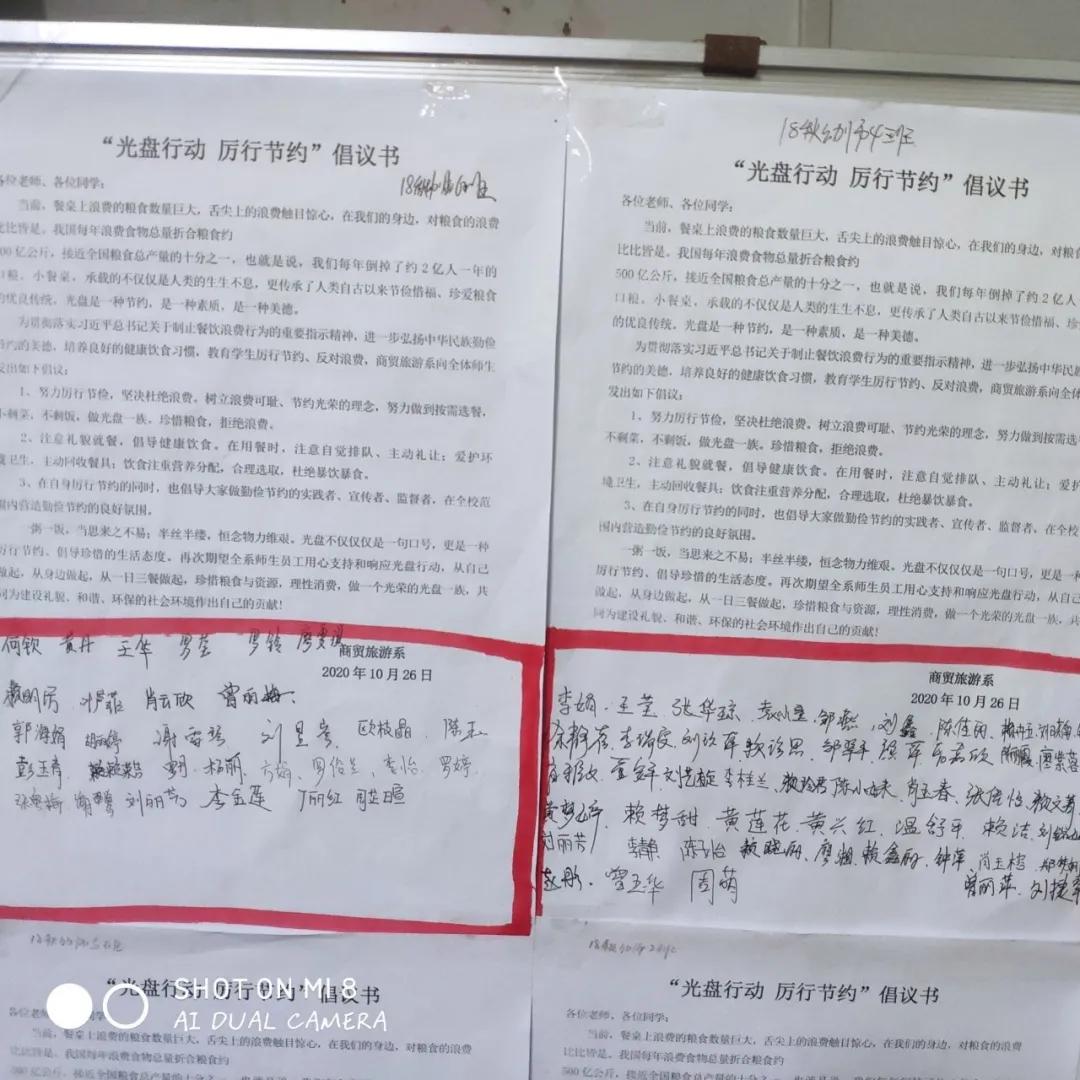 “光盘行动 厉行节约”倡议书
各位老师、各位同学:
当前,餐桌上浪费的粮食数量巨大,舌尖上的浪费触目惊心,在我们的身边,对粮食的浪费
比比皆是。我国每年浪费食物总量折合粮食约
00亿公斤,接近全国粮食总产量的十分之一,也就是说,我们每年倒掉了约2亿人一年的
口粮。小餐桌,承载的不仅仅是人类的生生不息,更传承了人类自古以来节俭惜福、珍爱粮食
的优良传统。光盘是一种节约,是一种素质,是一种美德。
为贯彻落实习近平总书记关于制止餐饮浪费行为的重要指示精神,进一步弘扬中华民族勤俭
节约的美德,培养良好的健康饮食习惯,教育学生厉行节约、反对浪费,商贸旅游系向全体师生
发出如下倡议:
1、努力厉行节俭,坚决杜绝浪费。树立浪费可耻、节约光荣的理念,努力做到按需选餐,
不剩菜,不剩饭,做光盘一族。珍惜粮食,拒绝浪费。
2、注意礼貌就餐,倡导健康饮食。在用餐时,注意自觉排队、主动礼让;爱护环
境卫生,主动回收餐具;饮食注重营养分配,合理选取,杜绝暴饮暴食。
3、在自身厉行节约的同时,也倡导大家做勤俭节约的实践者、宣传者、监督者,在全校范
围内营造勤俭节约的良好氛围。
一粥一饭,当思来之不易;半丝半缕,恒念物力维艰。光盘不仅仅仅是一句口号,更是一种
厉行节约、倡导珍惜的生活态度。再次期望全系师生员工用心支持和响应光盘行动,从自己
做起,从身边做起,从一日三餐做起,珍惜粮食与资源,理性消费,做一个光荣的光盘一族,共
同为建设礼貌、和谐、环保的社会环境作出自己的贡献!
何钦 黄丹 王华 罗莹 罗铃
商贸旅游系
2020年10月26日
肖云欣 曾丽梅
郭海娟 胡婷 谢雪玲 刘星雲 欧枝晶 陈玉
彭玉青 杨丽 方娟 罗俭兰 李怡 罗婷
刘丽芳 李金莲 丁丽红
18秋幼师4班
“光盘行动 厉行节约”倡议书
各位老师、各位同学:
当前,餐桌上浪费的粮食数量巨大,舌尖上的浪费触目惊心,在我们的身边,对粮食
比比皆是。我国每年浪费食物总量折合粮食约
500亿公斤,接近全国粮食总产量的十分之一,也就是说,我们每年倒掉了约2亿人
口粮。小餐桌,承载的不仅仅是人类的生生不息,更传承了人类自古以来节俭惜福、珍
的优良传统。光盘是一种节约,是一种素质,是一种美德。
为贯彻落实习近平总书记关于制止餐饮浪费行为的重要指示精神,进一步弘扬中华民族
节约的美德,培养良好的健康饮食习惯,教育学生厉行节约、反对浪费,商贸旅游系向全体
发出如下倡议:
1、努力厉行节俭,坚决杜绝浪费。树立浪费可耻、节约光荣的理念,努力做到按需选
不剩菜,不剩饭,做光盘一族。珍惜粮食,拒绝浪费。
2、注意礼貌就餐,倡导健康饮食。在用餐时,注意自觉排队、主动礼让;爱护
境卫生,主动回收餐具;饮食注重营养分配,合理选取,杜绝暴饮暴食。
3、在自身厉行节约的同时,也倡导大家做勤俭节约的实践者、宣传者、监督者,在全校
围内营造勤俭节约的良好氛围。
一粥一饭,当思来之不易;半丝半缕,恒念物力维艰。光盘不仅仅仅是一句口号,更是一
厉行节约、倡导珍惜的生活态度。再次期望全系师生员工用心支持和响应光盘行动,从自己
做起,从身边做起,从一日三餐做起,珍惜粮食与资源,理性消费,做一个光荣的光盘一族,共
同为建设礼貌、和谐、环保的社会环境作出自己的贡献!
商贸旅游系
2020年10月26日
李娟 王莹 张华琼 邹燕 刘鑫 陈佳丽
余静蓓 李瑞文 邹翠平 廖紫蓉
李桂兰 陈小妹 肖玉春 张佳怡 赖文菁
黄梦 赖梦甜 黄莲花 黄兴红 温舒平 赖洁
刘丽芳 李静 陈怡 赖晓丽 廖湘 赖鑫丽 钟萍 肖玉榕
赵彤 曾玉华 周萌 曾丽萍
“光盘行动 厉行节约”倡议书
各位老师
当前,餐桌上浪费的粮食数量巨大,舌尖上的浪费触目惊心,在我们的身边,对粮食的浪费
比比皆是。我国每年浪费食物总量折合粮食约
500亿公斤,接近全国粮食总产量的十分之一,也就是说,我们每年倒掉了约2亿人一年的
“光盘行动 厉行节约”倡议书
各位老师、各位同学:
当前,餐桌上浪费的粮食数量巨大,舌尖上的浪费触目惊心,在我们的身边,对粮食的浪费
比比皆是。我国每年浪费食物总量折合粮食约
500亿公斤,接近全国粮食总产量的十分之一,也就是说,我们每年倒掉了约2亿人一年的
SHOT ON MI 8
AI DUAL CAMERA